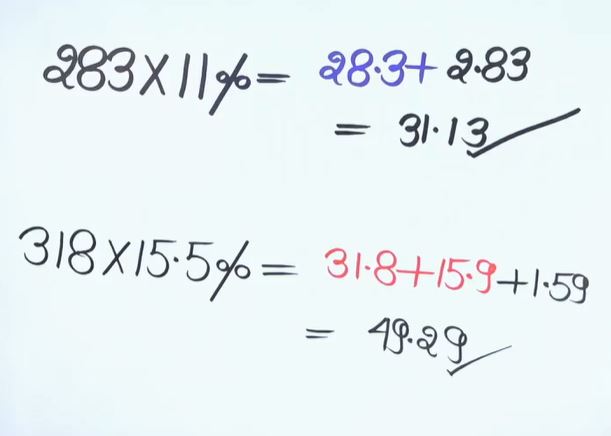 283×11%= 28.3+2.83
= 31.13
318×15.5%= 31.8+15.9+1.59
= 49.29